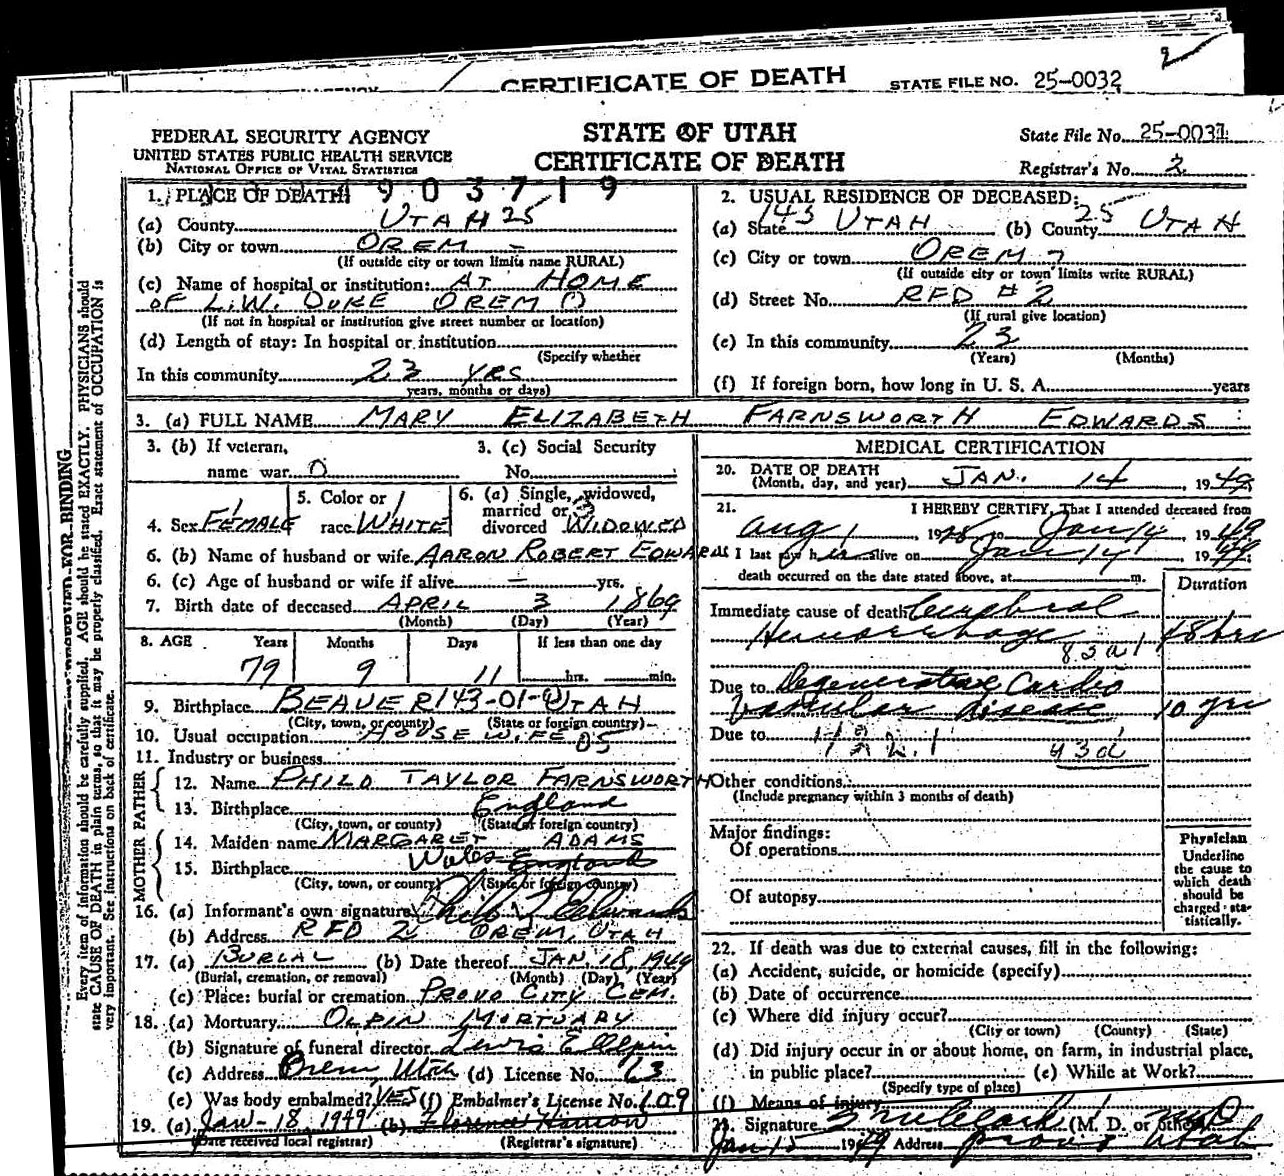 CERTIFICATE OF DEATH STATE FILE NO. 25-0032
FEDERAL SECURITY AGENCY
UNITED STATES PUBLIC HEALTH SERVICE
NATIONAL OFFICE OF VITAL STATISTICS
STATE OF UTAH
CERTIFICATE OF DEATH
State File No. 25-0031
Registrar's No. 2
1. PLACE OF DEATH 903719
(a) County UTAH 25
(b) City or town OREM
(If outside city or town limits name RURAL)
(c) Name of hospital or institution: AT HOME
OF L.W. DUKE OREM
(If not in hospital or institution give street number or location)
(d) Length of stay: In hospital or institution
(Specify whether
In this community 23 YRS
years, months or days)
2. USUAL RESIDENCE OF DECEASED:
(a) State 143 UTAH (b) County 25 UTAH
(c) City or town OREM
(If outside city or town limits write RURAL)
(d) Street No. RFD #2
(If rural give location)
(e) In this community 23
(Years) (Months)
(f) If foreign born, how long in U. S. A. years
3. (a) FULL NAME MARY ELIZABETH FARNSWORTH EDWARDS
3. (b) If veteran,
name war O
3. (c) Social Security
No.
4. Sex FEMALE
5. Color or
race WHITE
6. (a) Single, widowed,
married or
divorced WIDOWED
6. (b) Name of husband or wife AARON ROBERT EDWARDS
6. (c) Age of husband or wife if alive — yrs.
7. Birth date of deceased APRIL 3 1869
(Month) (Day) (Year)
8. AGE Years Months Days If less than one day
79 9 11 hrs. min.
9. Birthplace BEAVER 143-01-0 UTAH
(City, town, or county) (State or foreign country)
10. Usual occupation HOUSEWIFE 05
11. Industry or business
FATHER
12. Name PHILO TAYLOR FARNSWORTH
13. Birthplace England
(City, town, or county) (State or foreign country)
MOTHER
14. Maiden name MARGARET ADAMS
15. Birthplace Wales England
(City, town, or county) (State or foreign country)
16. (a) Informant's own signature Edwards
(b) Address RFD 2 OREM, UTAH
17. (a) BURIAL (b) Date thereof JAN. 18, 1949
(Burial, cremation, or removal) (Month) (Day) (Year)
(c) Place: burial or cremation PROVO CITY CEM.
18. (a) Mortuary OLPIN MORTUARY
(b) Signature of funeral director Lewis E Olpin
(c) Address Orem, Utah (d) License No. 63
(e) Was body embalmed? YES (f) Embalmer's License No. 609
19. (a) Jan-18, 1949 (b) Florence
(Date received local registrar) (Registrar's signature)
MEDICAL CERTIFICATION
20. DATE OF DEATH
(Month, day, and year) JAN. 14, 1949
21. I HEREBY CERTIFY, That I attended deceased from
Aug 1, 1948 to Jan 14 1949
I last saw her alive on Jan 14 1949
death occurred on the date stated above, at m.
Duration
Immediate cause of death Cerebral
Hemorrhage 48 hrs
83a1
Due to Degenerative Cardio
Vascular disease 10 yrs
Due to
93d
Other conditions
(Include pregnancy within 3 months of death)
Major findings:
Of operations
Of autopsy
Physician
Underline
the cause to
which death
should be
charged sta-
tistically.
22. If death was due to external causes, fill in the following:
(a) Accident, suicide, or homicide (specify)
(b) Date of occurrence
(c) Where did injury occur?
(City or town) (County) (State)
(d) Did injury occur in or about home, on farm, in industrial place,
in public place? (e) While at Work?
(Specify type of place)
(f) Means of injury
23. Signature Clark (M. D. or other) MD
Jan 15 1949 Address Provo Utah
RESERVED FOR BINDING
Every item of information should be carefully supplied. AGE should be stated EXACTLY. PHYSICIANS should
state CAUSE OF DEATH in plain terms, so that it may be properly classified. Exact statement of OCCUPATION is
very important. See instructions on back of certificate.